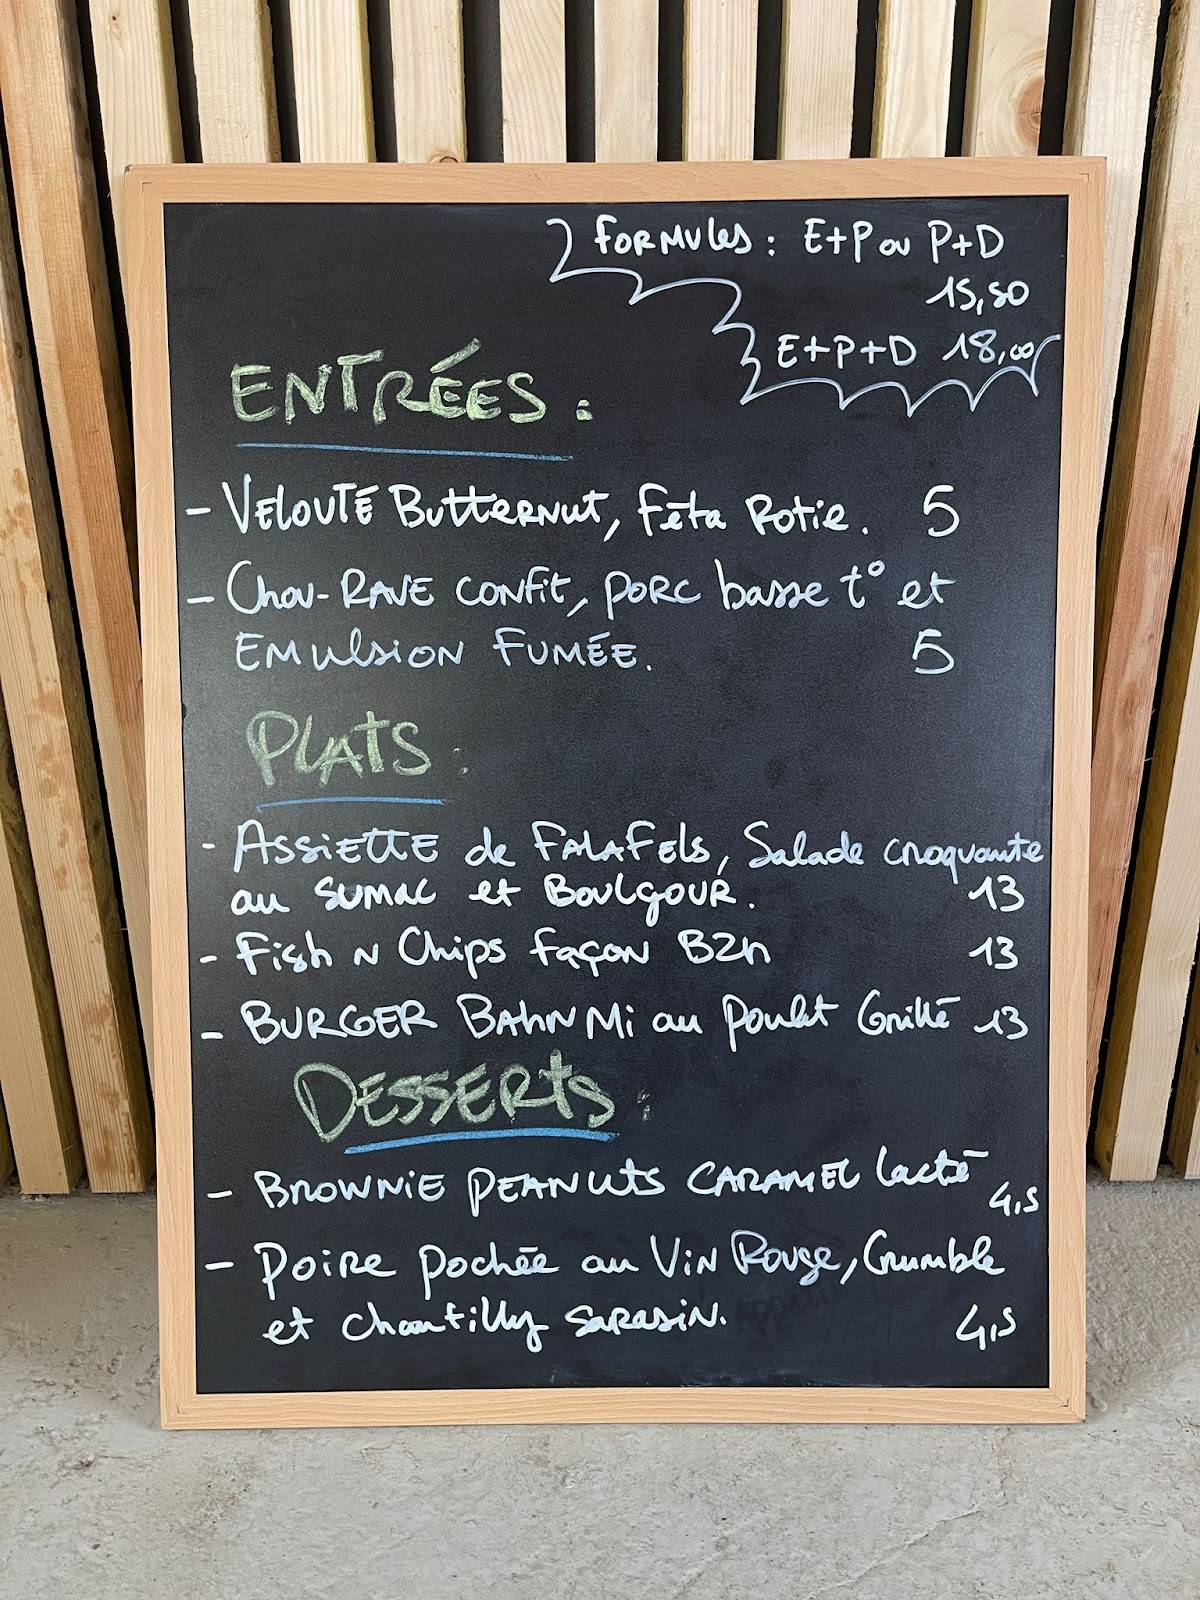 Formules : E+P ou P+D
15,50
E+P+D 18,00
ENTRÉES :
- VELOUTÉ Butternut, Fêta Rotie. 5
- Chou-RAVE CONFIT, PORC basse t° et
EMulsION FUMÉE. 5
PLATS :
- ASSIETTE de FALAFEls, Salade croquante
au SUMAC et BOULGOUR. 13
- Fish N Chips Façon B2h 13
- BURGER BAhN Mi au Poulet Grillé 13
DESSERTS :
- BROWNiE PEANUts CARAMEL lacté 4,5
- POIRE Pochée au VIN Rouge, Crumble
et chantilly SARASIN. 4,5